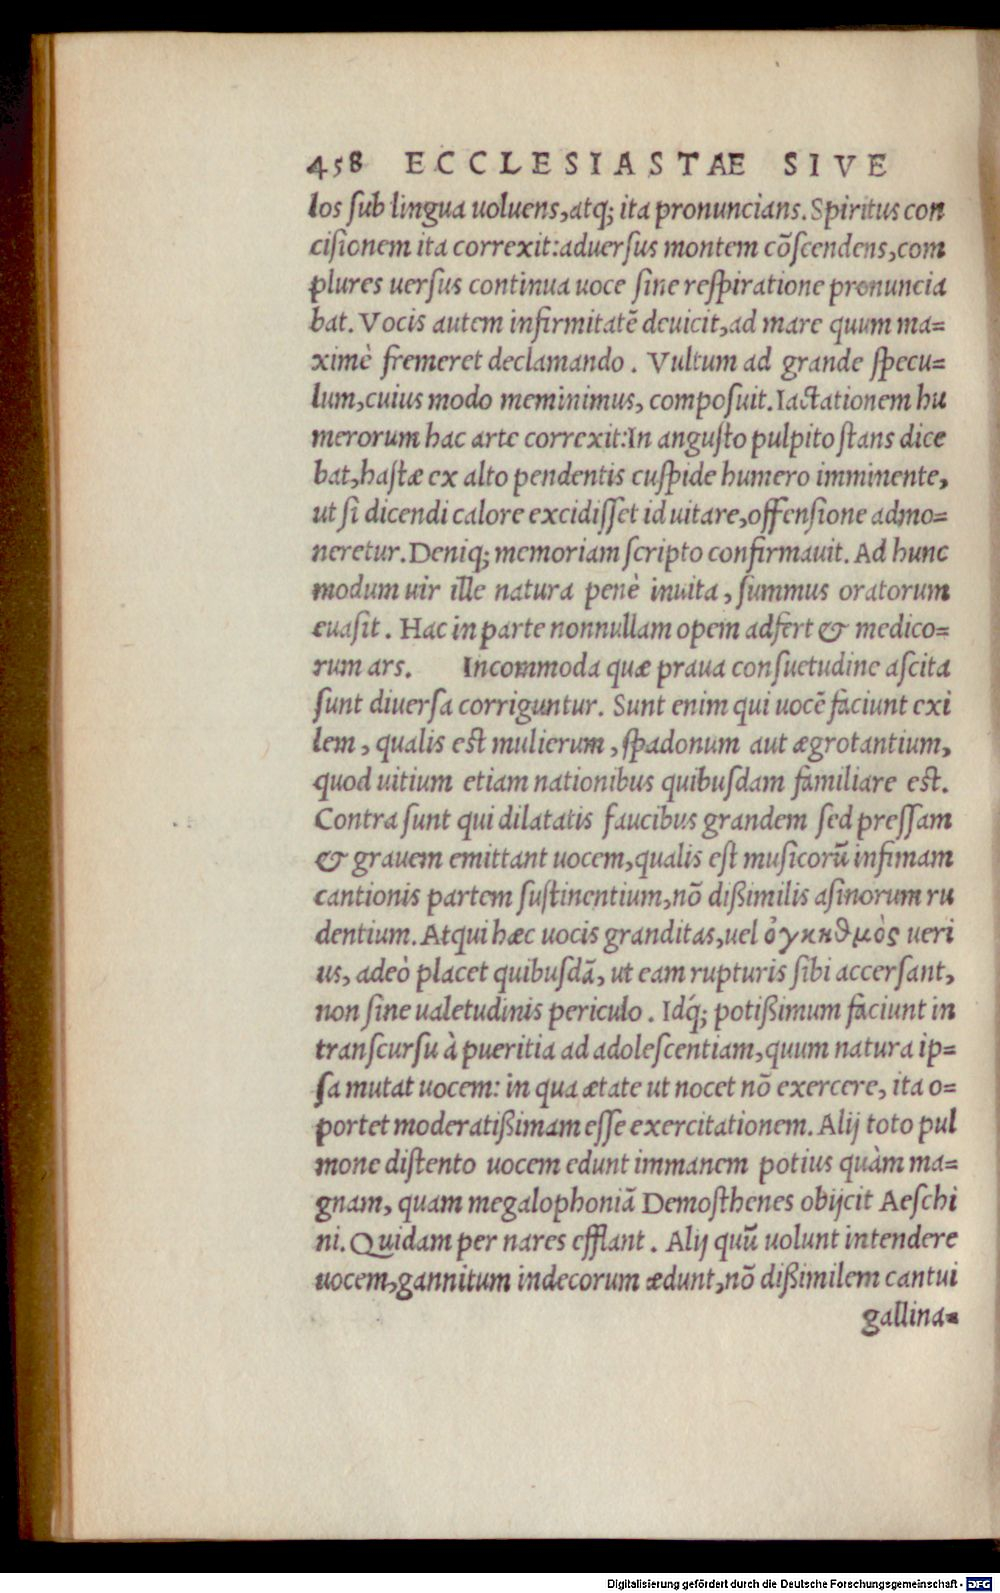 458 ECCLESIASTAE SIVE
los sub lingua uoluens, atq; ita pronuncians. Spiritus con
cisionem ita correxit: aduersus montem cõscendens, com
plures uersus continua uoce sine respiratione pronuncia
bat. Vocis autem infirmitatẽ deuicit, ad mare quum ma=
ximè fremeret declamando. Vultum ad grande specu=
lum, cuius modo meminimus, composuit. Iactationem hu
merorum hac arte correxit: In angusto pulpito stans dice
bat, hastæ ex alto pendentis cuspide humero imminente,
ut si dicendi calore excidisset id uitare, offensione admo=
neretur. Deniq; memoriam scripto confirmauit. Ad hunc
modum uir ille natura penè inuita, summus oratorum
euasit. Hac in parte nonnullam opem adfert & medico=
rum ars. Incommoda quæ praua consuetudine ascita
sunt diuersa corriguntur. Sunt enim qui uocẽ faciunt exi
lem, qualis est mulierum, spadonum aut ægrotantium,
quod uitium etiam nationibus quibusdam familiare est.
Contra sunt qui dilatatis faucibus grandem sed pressam
& grauem emittant uocem, qualis est musicorũ infimam
cantionis partem sustinentium, nõ dißimilis asinorum ru
dentium. Atqui hæc uocis granditas, uel ὀγκηθμὸς ueri
us, adeò placet quibusdã, ut eam rupturis sibi accersant,
non sine ualetudinis periculo. Idq́; potißimum faciunt in
transcursu à pueritia ad adolescentiam, quum natura ip=
sa mutat uocem: in qua ætate ut nocet nõ exercere, ita o=
portet moderatißimam esse exercitationem. Alij toto pul
mone distento uocem edunt immanem potius quàm ma=
gnam, quam megalophoniã Demosthenes obijcit Aeschi
ni. Quidam per nares efflant. Alij quũ uolunt intendere
uocem, gannitum indecorum ædunt, nõ dißimilem cantui
gallina=
Digitalisierung gefördert durch die Deutsche Forschungsgemeinschaft - DFG